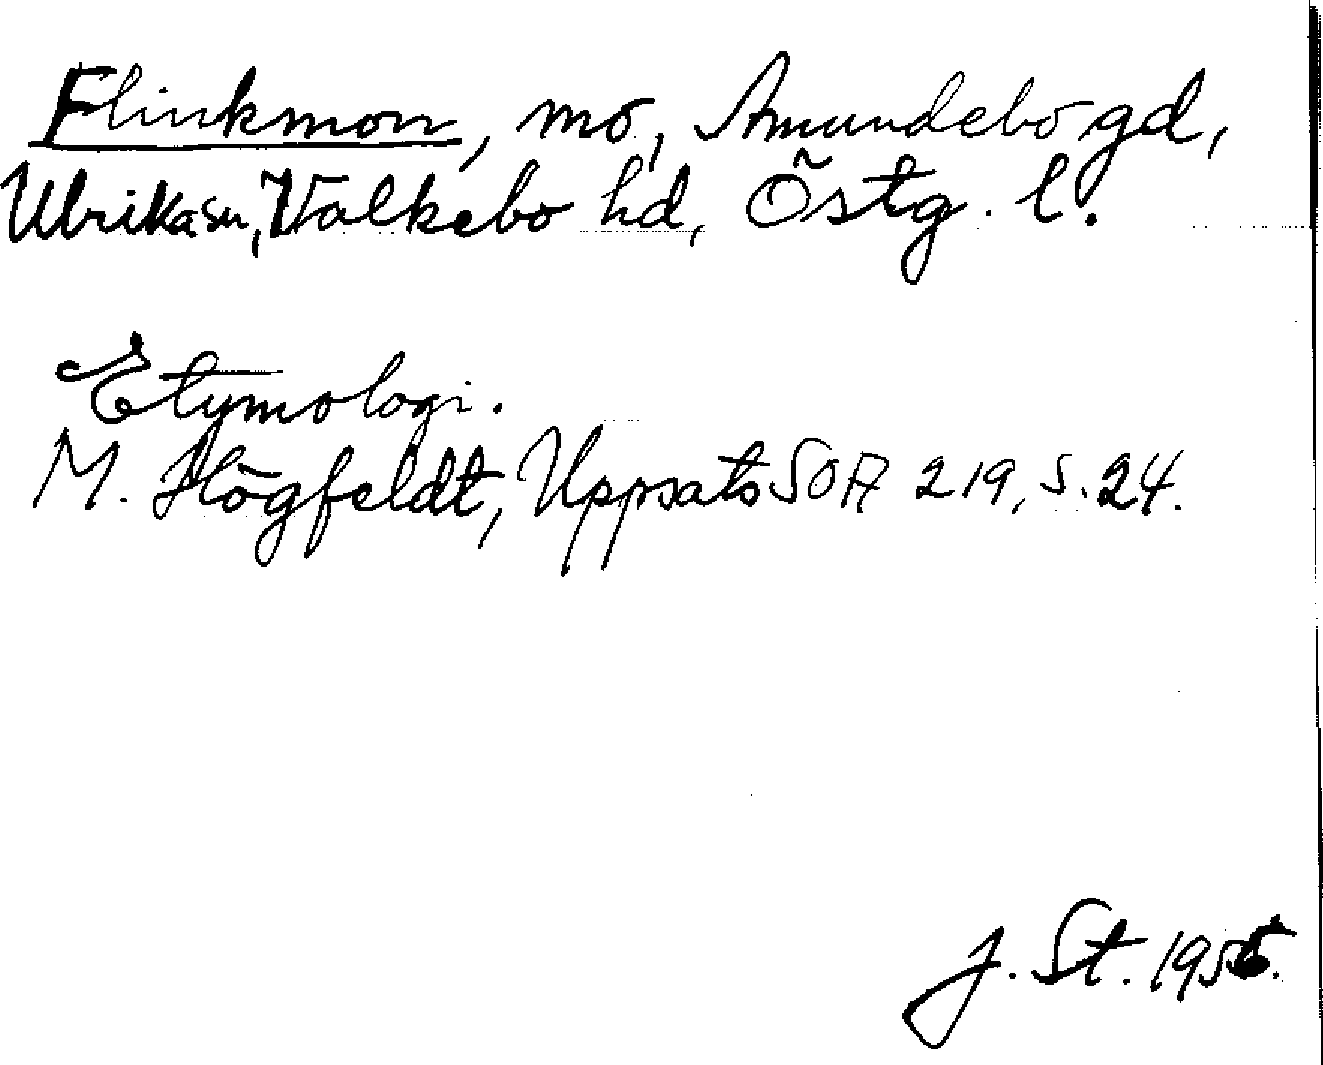 Flinkmon, mo, Amundebo gd,
Ulrika sn, Valkebo hd, Östg. l.
Etymologi.
M. Högfeldt, Uppsats SOA 219, s. 24.
J. St. 1955.